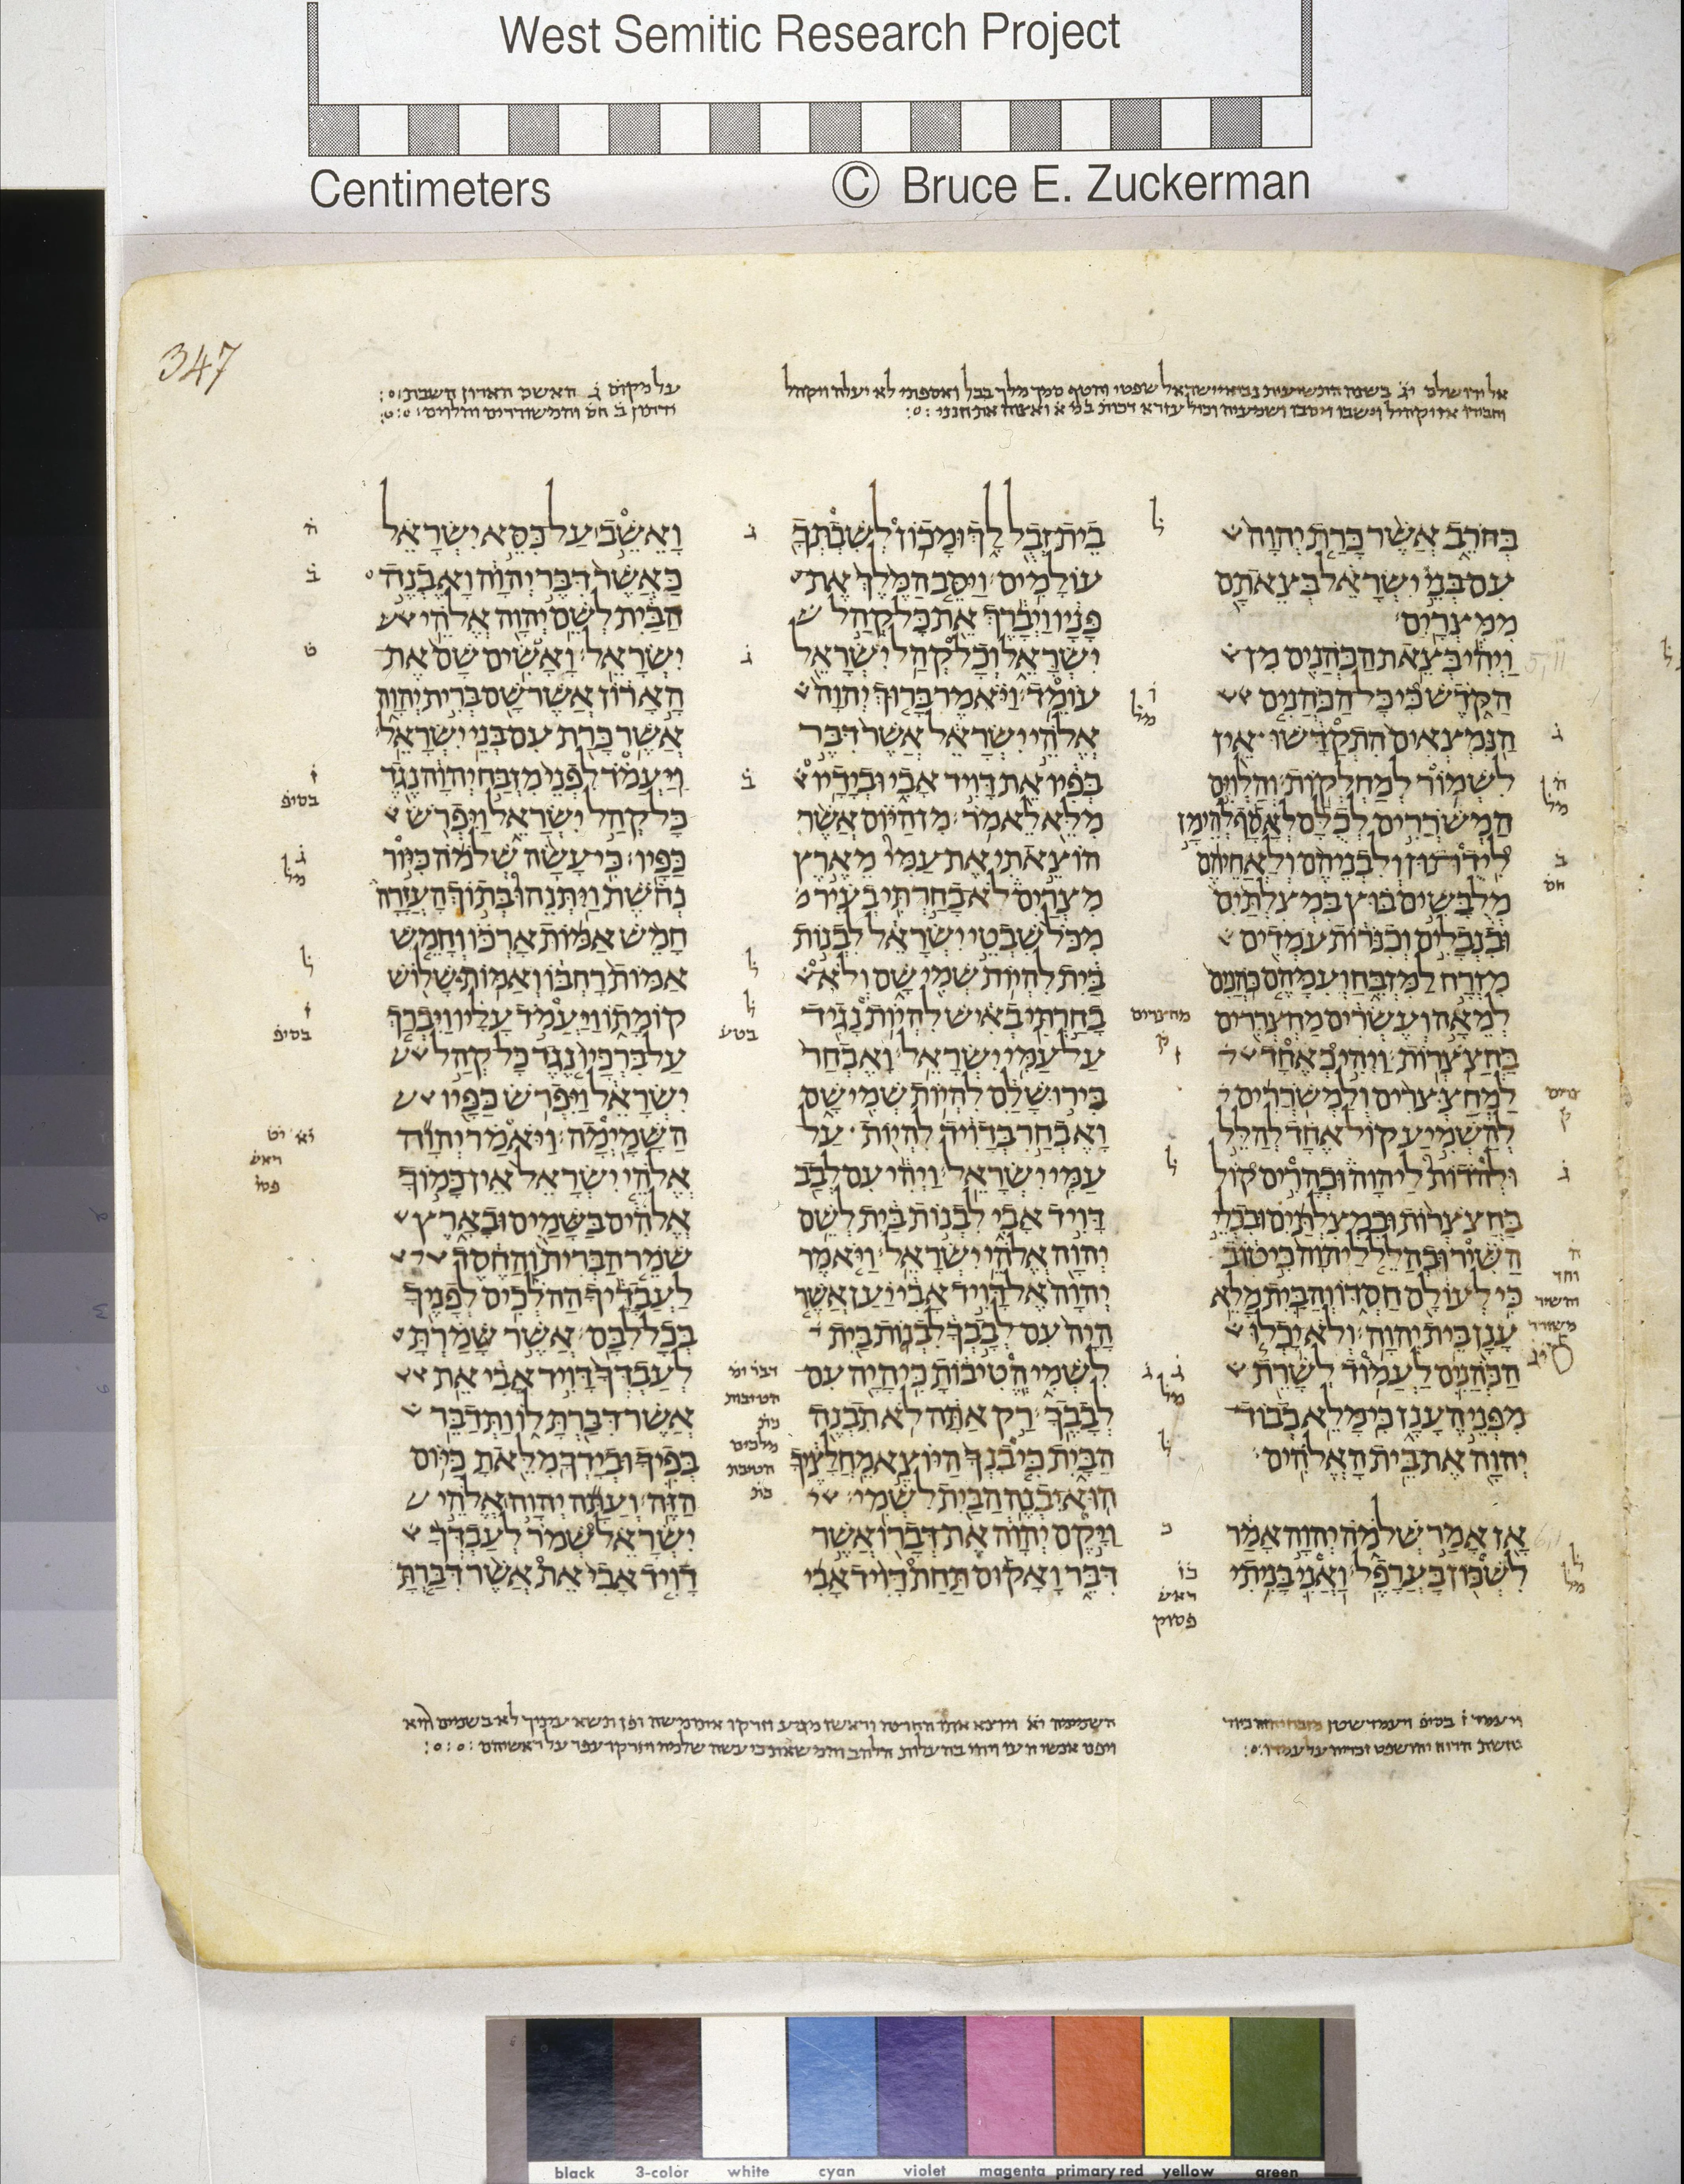 West Semitic Research Project
Centimeters
© Bruce E. Zuckerman
347
בחרב אשר כרת יהוה
עם בני ישראל בצאתם
ממצרים׃
ויהי בצאת הכהנים מן
הקדש כי כל הכהנים
הנמצאים התקדשו אין
לשמור למחלקות׃ והלוים
המשררים לכלם לאסף להימן
לידתון ולבניהם ולאחיהם
מלבשים בוץ במצלתים
ובנבלים וכנרות עמדים
מזרח למזבח ועמהם כהנים
למאה ועשרים מחצררים
בחצצרות׃ ויהי כאחד
למחצצרים ולמשררים
להשמיע קול אחד להלל
ולהדות ליהוה וכהרים קול
בחצצרות ובמצלתים ובכלי
השיר ובהלל ליהוה כי טוב
כי לעולם חסדו והבית מלא
ענן בית יהוה׃ ולא יכלו
הכהנים לעמוד לשרת
מפני הענן כי מלא כבוד
יהוה את בית האלהים׃
אז אמר שלמה יהוה אמר
לשכון בערפל׃ ואני בניתי
בית זבל לך ומכון לשבתך
עולמים׃ ויסב המלך את
פניו ויברך את כל קהל
ישראל וכל קהל ישראל
עומד׃ ויאמר ברוך יהוה
אלהי ישראל אשר דבר
בפיו את דויד אבי ובידיו
מלא לאמר׃ מן היום אשר
הוצאתי את עמי מארץ
מצרים לא בחרתי בעיר
מכל שבטי ישראל לבנות
בית להיות שמי שם ולא
בחרתי באיש להיות נגיד
על עמי ישראל׃ ואבחר
בירושלם להיות שמי שם
ואבחר בדויד להיות על
עמי ישראל׃ ויהי עם לבב
דויד אבי לבנות בית לשם
יהוה אלהי ישראל׃ ויאמר
יהוה אל דויד אבי יען אשר
היה עם לבבך לבנות בית
לשמי הטיבות כי היה עם
לבבך׃ רק אתה לא תבנה
הבית כי בנך היוצא מחלציך
הוא יבנה הבית לשמי׃
ויקם יהוה את דברו אשר
דבר ואקום תחת דויד אבי
ואשב על כסא ישראל
כאשר דבר יהוה ואבנה
הבית לשם יהוה אלהי
ישראל׃ ואשים שם את
הארון אשר שם ברית יהוה
אשר כרת עם בני ישראל׃
ויעמד לפני מזבח יהוה נגד
כל קהל ישראל ויפרש
כפיו׃ כי עשה שלמה כיור
נחשת ויתנהו בתוך העזרה
חמש אמות ארכו וחמש
אמות רחבו ואמות שלוש
קומתו ויעמד עליו ויברך
על ברכיו נגד כל קהל
ישראל ויפרש כפיו
השמימה׃ ויאמר יהוה
אלהי ישראל אין כמוך
אלהים בשמים ובארץ
שמר הברית והחסד
לעבדיך ההלכים לפניך
בכל לבם׃ אשר שמרת
לעבדך דויד אבי את
אשר דברת לו ותדבר
בפיך ובידך מלאת כיום
הזה׃ ועתה יהוה אלהי
ישראל שמר לעבדך
דויד אבי את אשר דברת
black 3-color white cyan violet magenta primary red yellow green